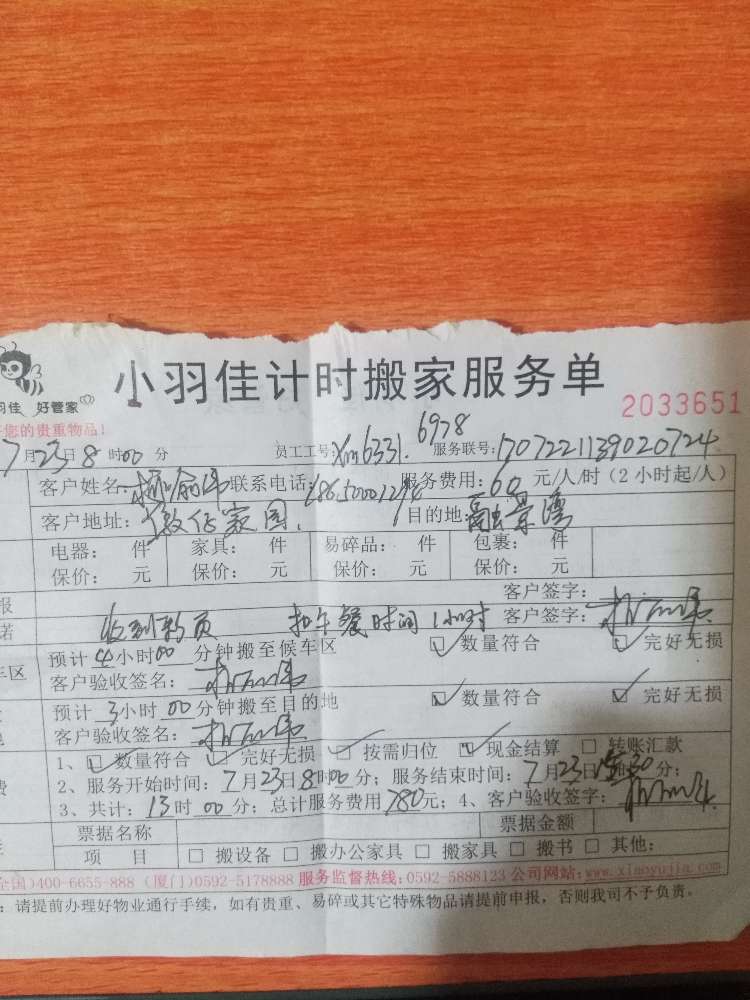 小羽佳计时搬家服务单
羽佳 好管家
2033651
您的贵重物品！
7月23日8时00分 员工工号：Xm6331. 6978 服务联号：1707221139020724
客户姓名： 联系电话： 服务费用：60元/人/时（2小时起/人）
客户地址： 家园 目的地： 景湾
电器： 件 家具： 件 易碎品： 件 包裹： 件
保价： 元 保价： 元 保价： 元 保价： 元
客户签字：
收到 页 扣午餐时间1小时 客户签字：
预计4小时00分钟搬至候车区 ☑ 数量符合 ☑ 完好无损
客户验收签名：
预计3小时00分钟搬至目的地 ☑ 数量符合 ☑ 完好无损
客户验收签名：
1、☑ 数量符合 ☑ 完好无损 ☑ 按需归位 ☑ 现金结算 □ 转账汇款
2、服务开始时间：7月23日8时00分；服务结束时间：7月23日 时30分；
3、共计：13时00分；总计服务费用780元；4、客户验收签字：
票据名称 票据金额
项 目 □ 搬设备 □ 搬办公家具 □ 搬家具 □ 搬书 □ 其他：
全国)400-6655-888 (厦门)0592-5178888 服务监督热线:0592-5888123 公司网站:www.xiaoyujia.com
：请提前办理好物业通行手续，如有贵重、易碎或其它特殊物品请提前申报，否则我司不予负责。